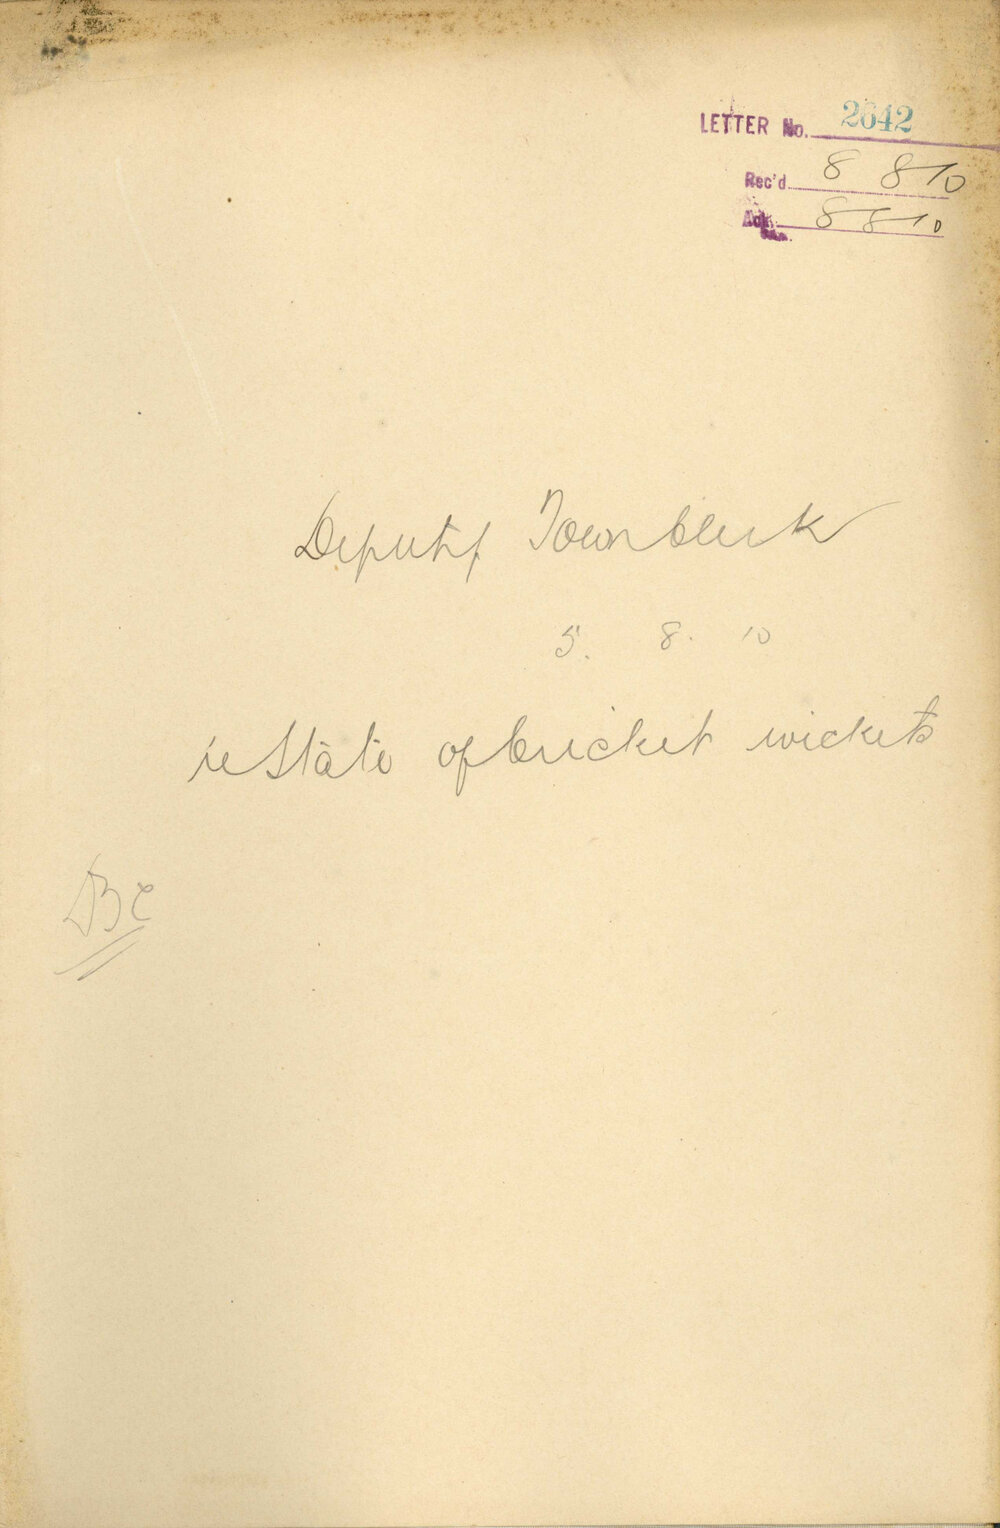 LETTER No. 2642
Rec'd 8 8 10
Ack 8 8 10
Deputy Town Clerk
5. 8. 10
re State of Cricket wickets